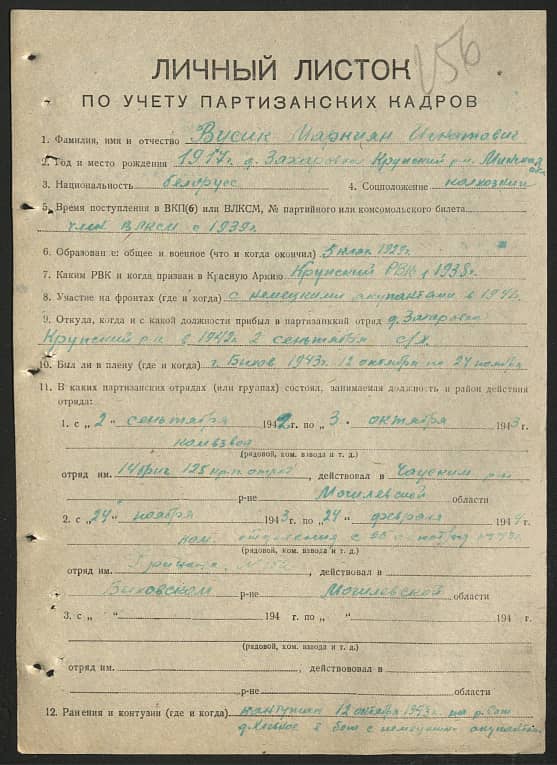 156
ЛИЧНЫЙ ЛИСТОК
ПО УЧЕТУ ПАРТИЗАНСКИХ КАДРОВ
1. Фамилия, имя и отчество Висик Маркиян Игнатович
2. Год и место рождения 1917г. д. Захаровка Крупский р-н. Минская
3. Национальность белорусс 4. Соцположение колхозник
5. Время поступления в ВКП(б) или ВЛКСМ, № партийного или комсомольского билета
член ВЛКСМ с 1939г.
6. Образован е: общее и военное (что и когда окончил) 5 1929г.
7. Каким РВК и когда призван в Красную Армию Крупский РВК 1938г.
8. Участие на фронтах (где и когда) с немецкими окупантами в 194
9. Откуда, когда и с какой должности прибыл в партизанский отряд д. Захаровка
Крупский р-н в 1942г. 2 сеньтября с/х.
10. Был ли в плену (где и когда) г. Быхов 1943г. 12 октября по 24 ноября
11. В каких партизанских отрядах (или группах) состоял, занимаемая должность и район действия
отряда:
1. с „2“ сеньтября 1942г. по „3“ октября 1943г.
комвзвод
(рядовой, ком. взвода и т. д.)
отряд им. 14 125 отряд, действовал в Чауским р-н
р-не Могилевской области
2. с „24“ ноября 1943г. по „24“ февраля 1944г.
ком. отделения с
(рядовой, ком. взвода и т. д.)
отряд им. Гришина, действовал в
Быховском р-не Могилевской области
3. с „ “ 194 г. по „ “ 194 г.
(рядовой, ком. взвода и т. д.)
отряд им. , действовал в
р-не области
12. Ранения и контузии (где и когда) контужен 12 октября 1943г. на р. Сож
д. в бою с немецкими окупантами.